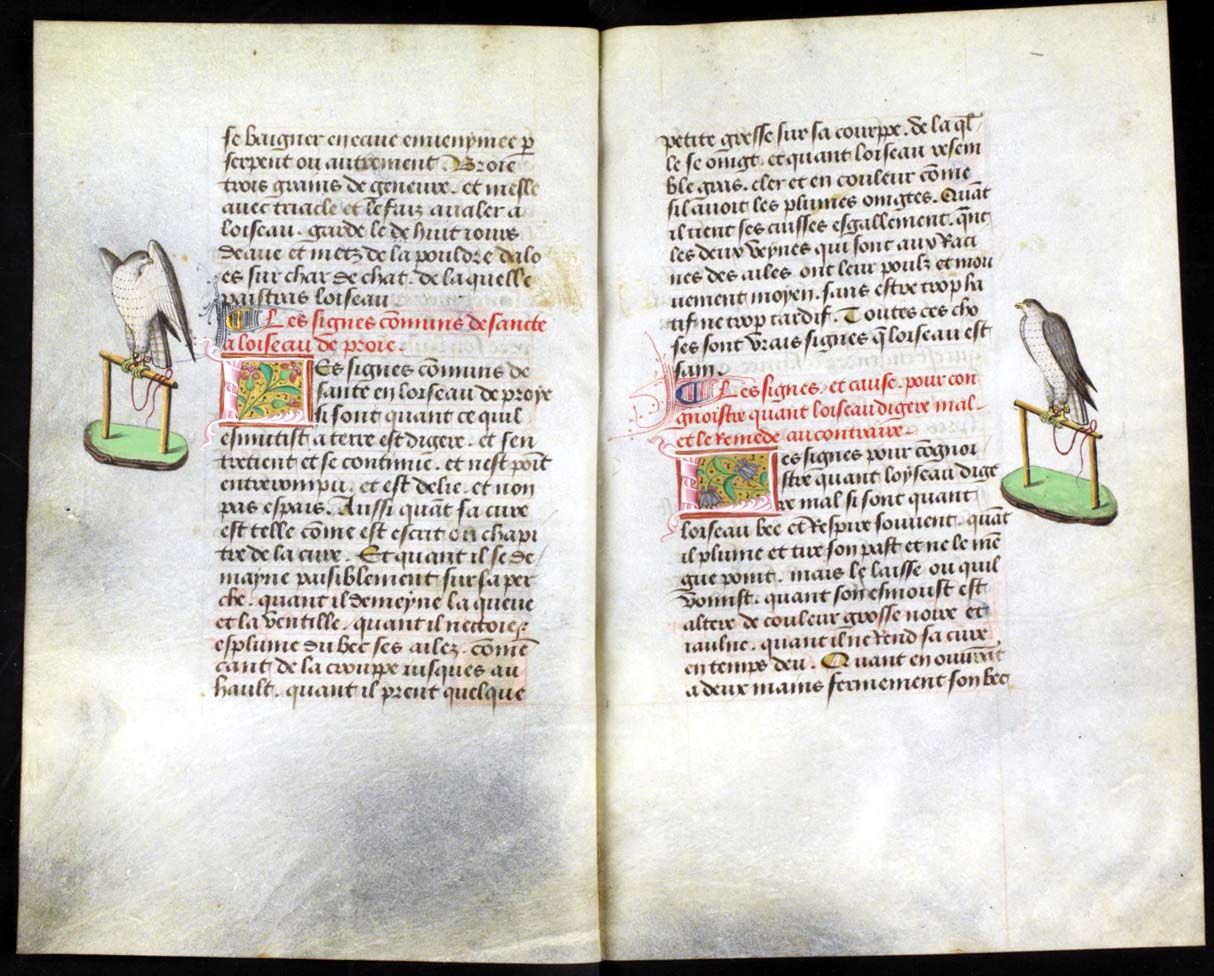 se baigner en eaue envenymee p
serpent ou autrement. Broie
trois grains de genevre. et mesle
avec triacle et le faiz avaler a
loiseau. garde le de huit jours
deaue et metz de la pouldre dalo
es sur char de chat. de laquelle
paistras loiseau
Les signes cõmuns de sancte
a loiseau de proie.
Es signes cõmuns de
sante en loiseau de proye
si sont quant ce quil
esmutist a terre est digere. et sen
tretient et se continue. et nest poĩt
entrerompu. et est delie. et non
pas espais. Aussi quãt sa cure
est telle cõme est escrit ou chapi
tre de la cure. Et quant il se de
mayne paisiblement sur sa per
che. quant il demeyne la queue
et la ventille. quant il nectoie
esplume du bec ses ailez. cõmẽ
cant de la crouppe jusques au
hault. quant il prent quelque
petite gresse sur sa courppe. de la ql
le se oingt. et quant loiseau resem
ble gras. cler et en couleur cõme
sil avoit les plumes oingtes. Quãt
il tient ses cuisses esgallement. qñt
les deux veynes qui sont aux Raci
nes des ailes ont leur poulz et mou
vement moyen. sans estre trop ha
tif ne trop tardif. Toutes ces cho
ses sont vrais signes q̃ loiseau est
sain.
Les signes. et cause. pour con
gnoistre quant loiseau digere mal.
et le Remede au contraire.
es signes pour cognoi
stre quant loyseau dige
re mal si sont quant
loiseau bee et Respire souvent. quãt
il plume et tire son past et ne le mẽ
gue point. mais le laisse ou quil
vomist. quant son esmoust est
altere de couleur grosse noire et
jaulne. quant il ne Rend sa cure
en temps deu. Quant en ouvrãt
a deux mains fermement son bec